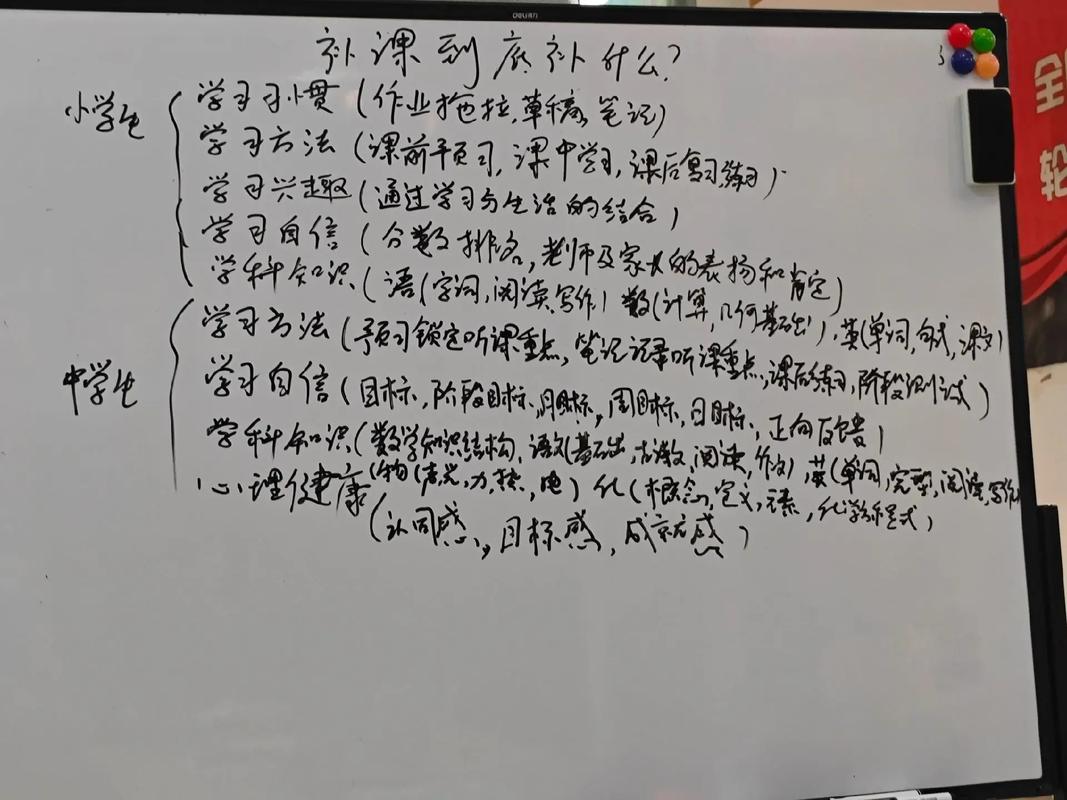 DELI得力
补课到底补什么?
小学生
学习习惯(作业拖拉,草稿,笔记)
学习方法(课前预习,课中学习,课后复习练习)
学习兴趣(通过学习与生活的结合)
学习自信(分数排名,老师及家长的表扬和肯定)
学科知识(语(字词,阅读,写作)数(计算,几何基础),英(单词,句式,课文)
中学生
学习方法(预习锁定听课重点,笔记记录听课重点,课后练习,阶段测试)
学习自信(目标,阶段目标,月目标,周目标,日目标,正向反馈)
学科知识(数学知识结构,语文(基础,古诗文,阅读,作文),英(单词,完型,阅读,写作)
物(声光,力,热,电)化(概念,定义,元素,化学方程式)
心理健康(认同感,目标感,成就感)
全
轮